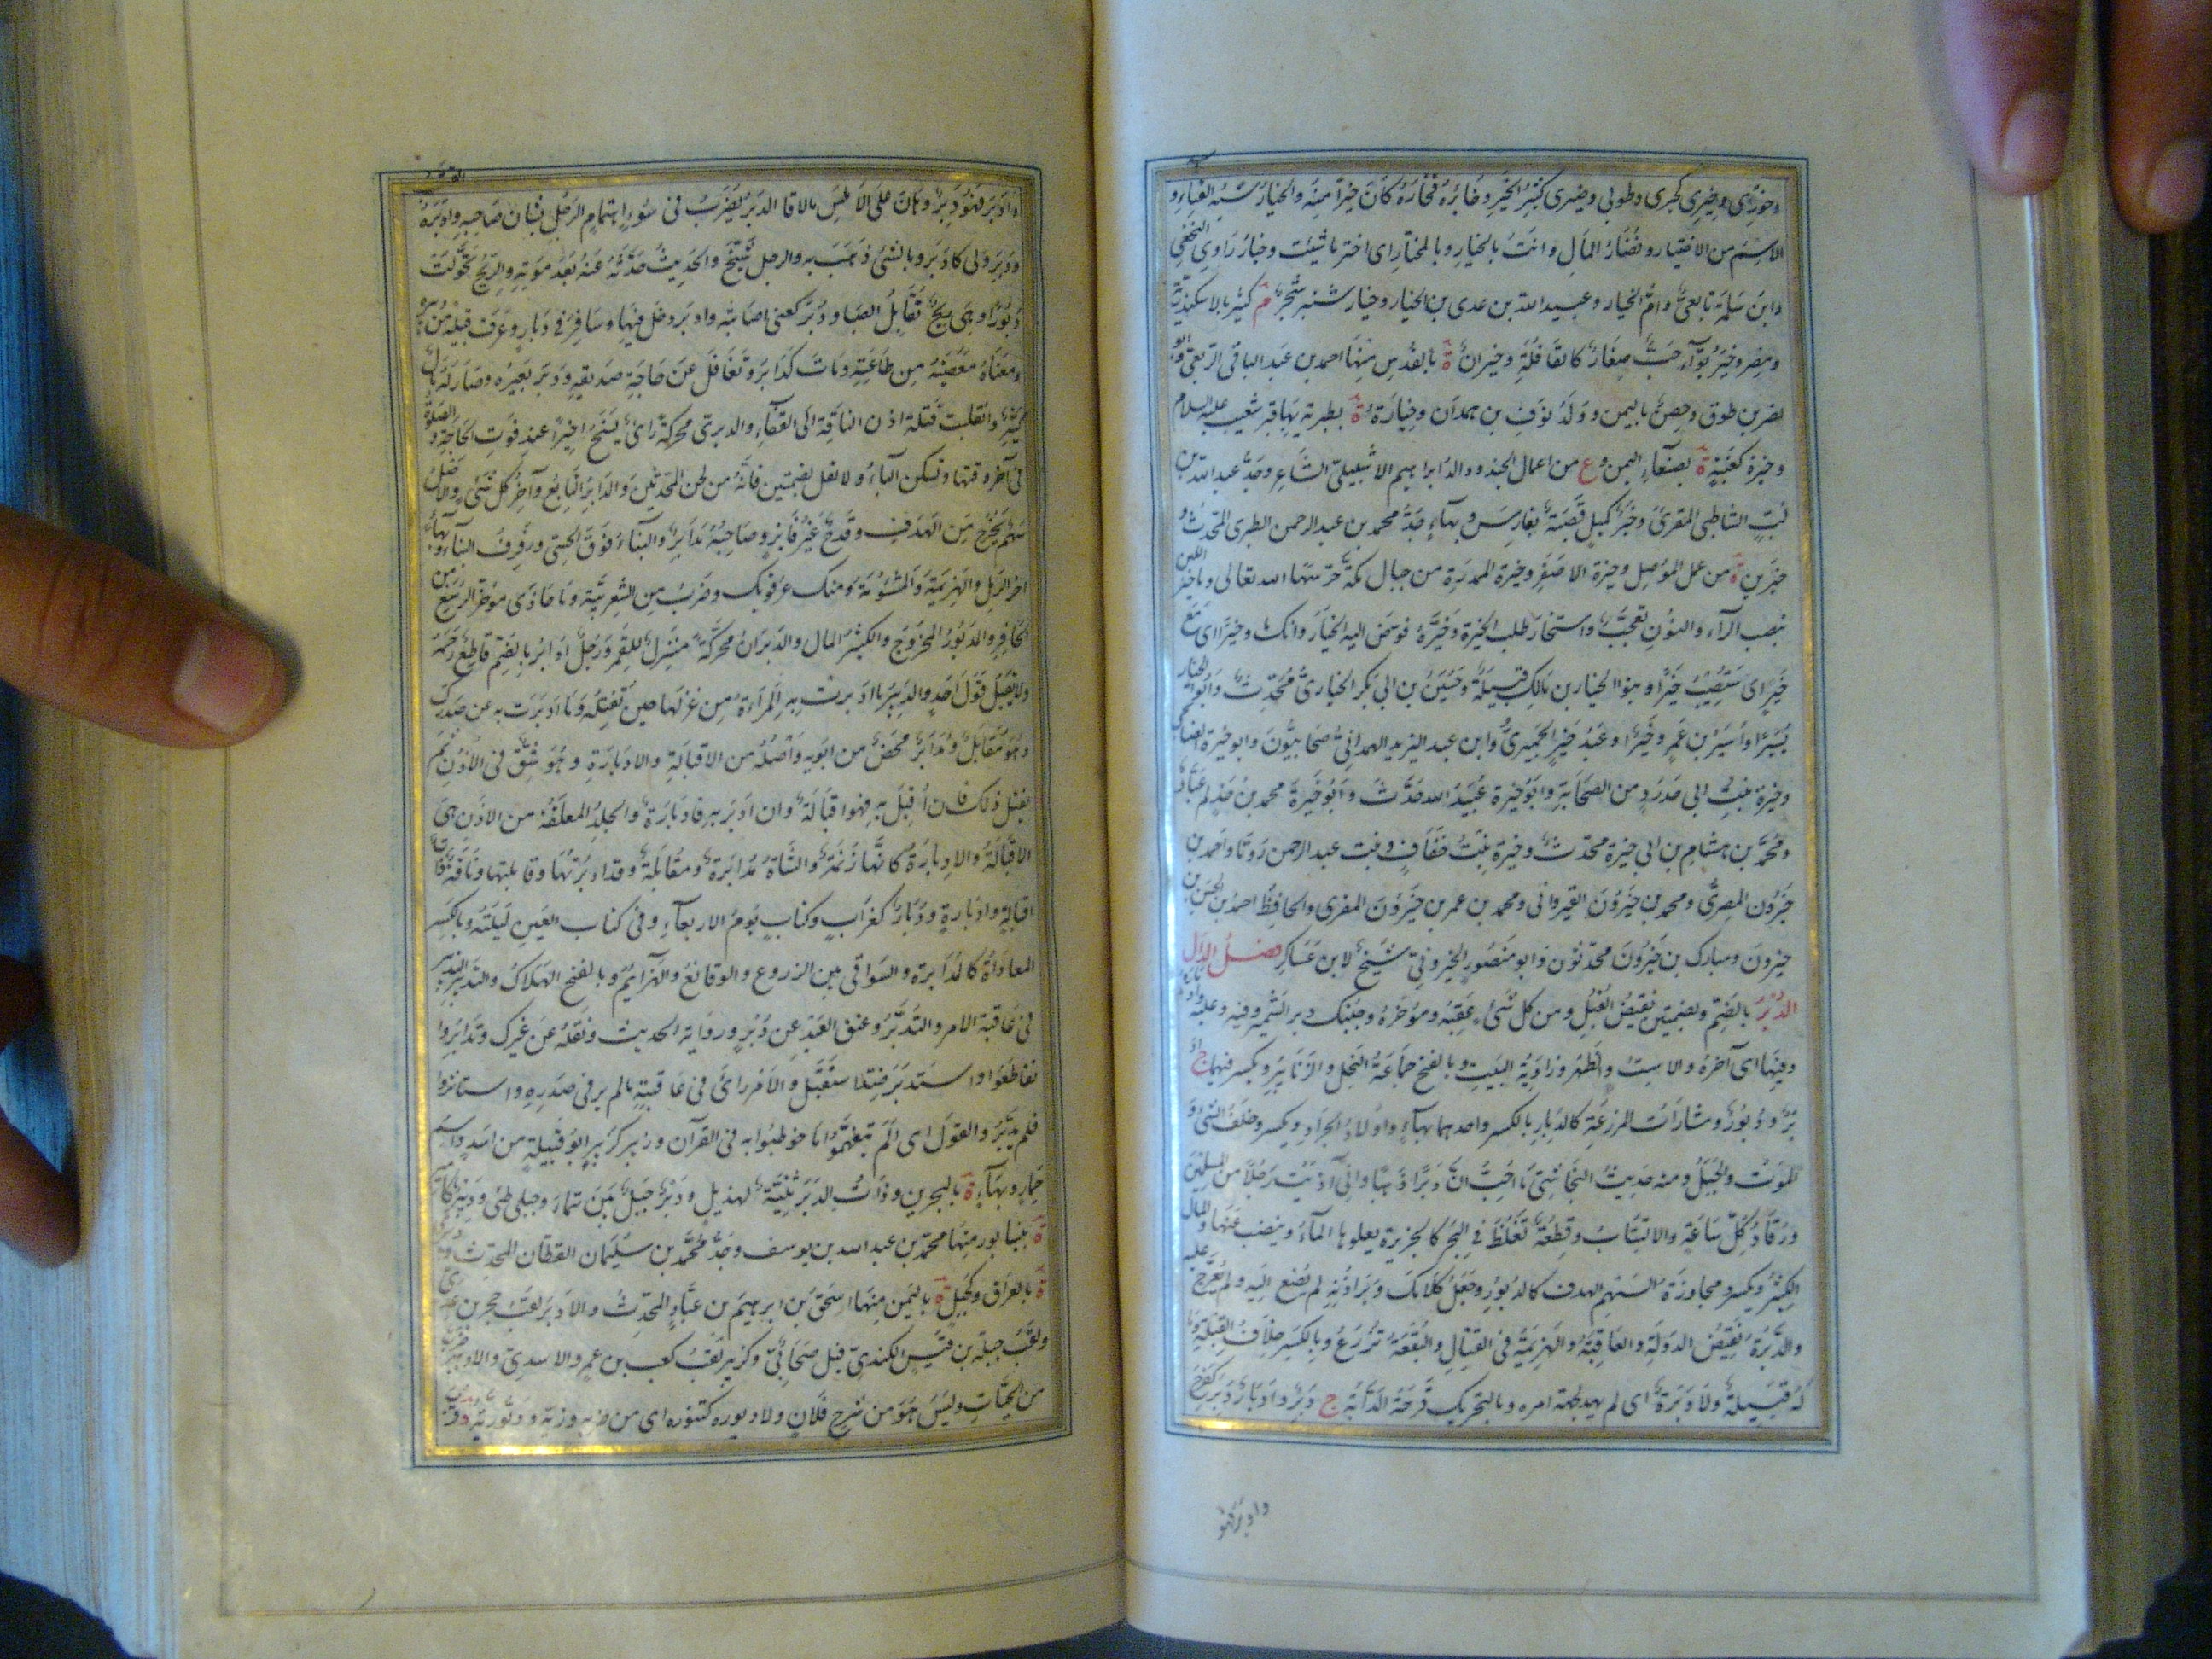 وخورى وخيرى كجرى وطوبى وضيزى كثير الخير وخايره فخاره كان خيرا منه والخيار شبه القثاء و
الاسم من الاختيار ونضار المال وانت بالخيار وبالمختار اى اختر ما شئت وخيار راوى النخعى
وابن سلمة تابعى وام الخيار وعبيد الله بن عدى بن الخيار وخيار شنبر شجر م كثير بالاسكندرية
ومصر وخير بوآء حب صغار كالقاقلة وخيران ة بالقدس منها احمد بن عبد الباقى الربعى وابو
نصر بن طوق وحصن باليمن وولد نوف بن همدان وخيارة ة بطبرية بها قبر شعيب عليه السلام
وخيرة كعنبة ة بصنعاء اليمن وع من اعمال الجند ووالد ابراهيم الاشبيلى الشاعر وجد عبد الله بن
لب الشاطبى المقرئ وخير كميل قصبة بفارس وبهاء جد محمد بن عبد الرحمن الطبرى المحدث و
خيرين ة من عمل الموصل وخيرة الاصفر وخيرة الممدرة من جبال مكة حرسها الله تعالى وما خير اللبن
بنصب الرآء والنون تعجب واستخار طلب الخيرة وخيره فوض اليه الخيار وانك ما وخيرا اى مع
خير اى ستصيب خيرا وبنو الخيار بن مالك قبيلة وحسين بن ابى بكر الخيارى محدث وابو الخيار
يسير او اسير بن عمرو وخير او عبد خير الحميرى وابن عبد اليزيد الهمدانى صحابيون وابو خيرة الصنابحى
وخيرة بنت ابى حدرد من الصحابة وابو خيرة عبيد الله حدث وابو خيرة محمد بن حذلم عباد
ومحمد بن هشام بن ابى خيرة محدث وخيرة بنت خفاف وبنت عبد الرحمن روتا واحمد بن
خيرون المصرى ومحمد بن خيرون القيروانى ومحمد بن عمر بن خيرون المقرى والحافظ احمد بن الحسن بن
خيرون ومبارك بن خيرون محدثون وابو منصور الخيرونى شيخ لابن عساكر فصل الدال
الدبر بالضم وبضمتين نقيض القبل ومن كل شئ عقبه ومؤخره وجئتك دبر الشهر وفيه وعليه وادباره
وفيها اى آخره والاست والظهر وزاوية البيت وبالفتح جماعة النحل والزنابير ويكسر فيهما ج اد
بر ودبور ومشارات المزرعة كالدبار بالكسر واحدهما بهاء واولاد الجراد ويكسر وخلف الشئ و
الموت والجبل ومنه حديث النجاشى ما احب ان دبرا ذهبا وانى آذيت رجلا من المسلمين
ورقاد كل ساعة والاكتتاب وقطعة تغلظ فى البحر كالجزيرة يعلوها الماء وينضب عنها والمال
الكثير ويكسر ومجاوزة السهم الهدف كالدبور وجعل كلامك دبر اذنه لم يصغ اليه ولم يعرج عليه
والدبرة نقيض الدولة والعاقبة والهزيمة فى القتال والبقعة تزرع وبالكسر خلاف القبلة وما
له قبلة ولا دبرة اى لم يهتد لجهة امره وبالتحريك قرحة الدابة ج دبر وادبار دبر كفرح
وادبر فهو
وادبر فهو دبر وهان على الاملس ما لاقى الدبر يضرب فى سوء اهتمام الرجل بشان صاحبه وادبره
ودبر ولى كادبر وبالشئ ذهب به والرجل شيخ والحديث حدثه عنه بعد موته والريح تحولت
دبورا وهى ريح تقابل الصبا ودبر كعنى اصابته وادبر دخل فيها وسافر فى دبار وعرف قبيله من دبيره
ومعناه معصيته من طاعته ومات كدابر وتغافل عن حاجة صديقه ودبر بعيره وصار له مال
كثير وانقلبت فتلة اذن الناقة الى القفاء والدبرى محركة راى يسنح اخيرا عند فوت الحاجة والصلوة
فى آخر وقتها وتسكن الباء ولا تقل بضمتين فانه من لحن المحدثين والدابر التابع وآخر كل شئ والاصل
وسهم يخرج من الهدف وقدح غير فائز وصاحبه مدابر والبناء فوق الحسى ورفرف البناء وبهاء
اخر الرمل والهزيمة والمشؤمة ومنك عرقوبك وضرب من الشغزبية وما حاذى مؤخر الرسغ من
الحافر والمدبور المجروح والكثير المال والدبران محركة منزل للقمر ورجل ادابر بالضم قاطع رحمه
ولا يقبل قول احد والدبير ما ادبرت به المرأة من غزلها حين تفتله وما ادبرت به عن صدرك
وهو مقابل ومدابر محض من ابويه واصله من الاقبالة والادبارة وهو شق فى الاذن ثم
يفتل ذلك فان اقبل به فهو اقبالة وان ادبر به فادبارة والجلدة المعلقة من الاذن هى
الاقبالة والادبارة كانها زنمة والشاة مدابرة ومقابلة وقد ادبرتها وقابلتها وناقة ذات
اقبالة وادبارة ودبار كغراب وكتاب يوم الاربعاء وفى كتاب العين ليلته وبالكسر
المعاداة كالمدابرة والسواقى بين الزروع والوقائع والهزائم وبالفتح الهلاك والتدبير النظر
فى عاقبة الامر والتدبر وعتق العبد عن دبر ورواية الحديث ونقله عن غيرك وتدابروا
تقاطعوا واستدبر ضد استقبل والامر رأى فى عاقبته ما لم ير فى صدره واستاثروا
فلم يدبر والقول اى الم يتفهموا ما خوطبوا به فى القرآن ودبير كزبير ابو قبيلة من اسد واسم
حمار وبهاء ة بالبحرين وذات الدبر ثنية لهذيل ودبر جبل بين تيماء وجبلى طئ ودبير كامير
ة بنيسابور منها محمد بن عبد الله بن يوسف وجد محمد بن سليمان القطان المحدث ودبرا
ة بالعراق وكجبل ة باليمن منها اسحق بن ابرهيم بن عباد المحدث والادبر لقب حجر بن عدى
ولقب جبلة بن قيس الكندى قيل صحابى وكزبير لقب كعب بن عمرو الاسدى والاديبر ضرب
من الحيات وليس هو من شرج فلان ولا دبوره كتنوره اى من ضربه وزيه ودبورية د قرب